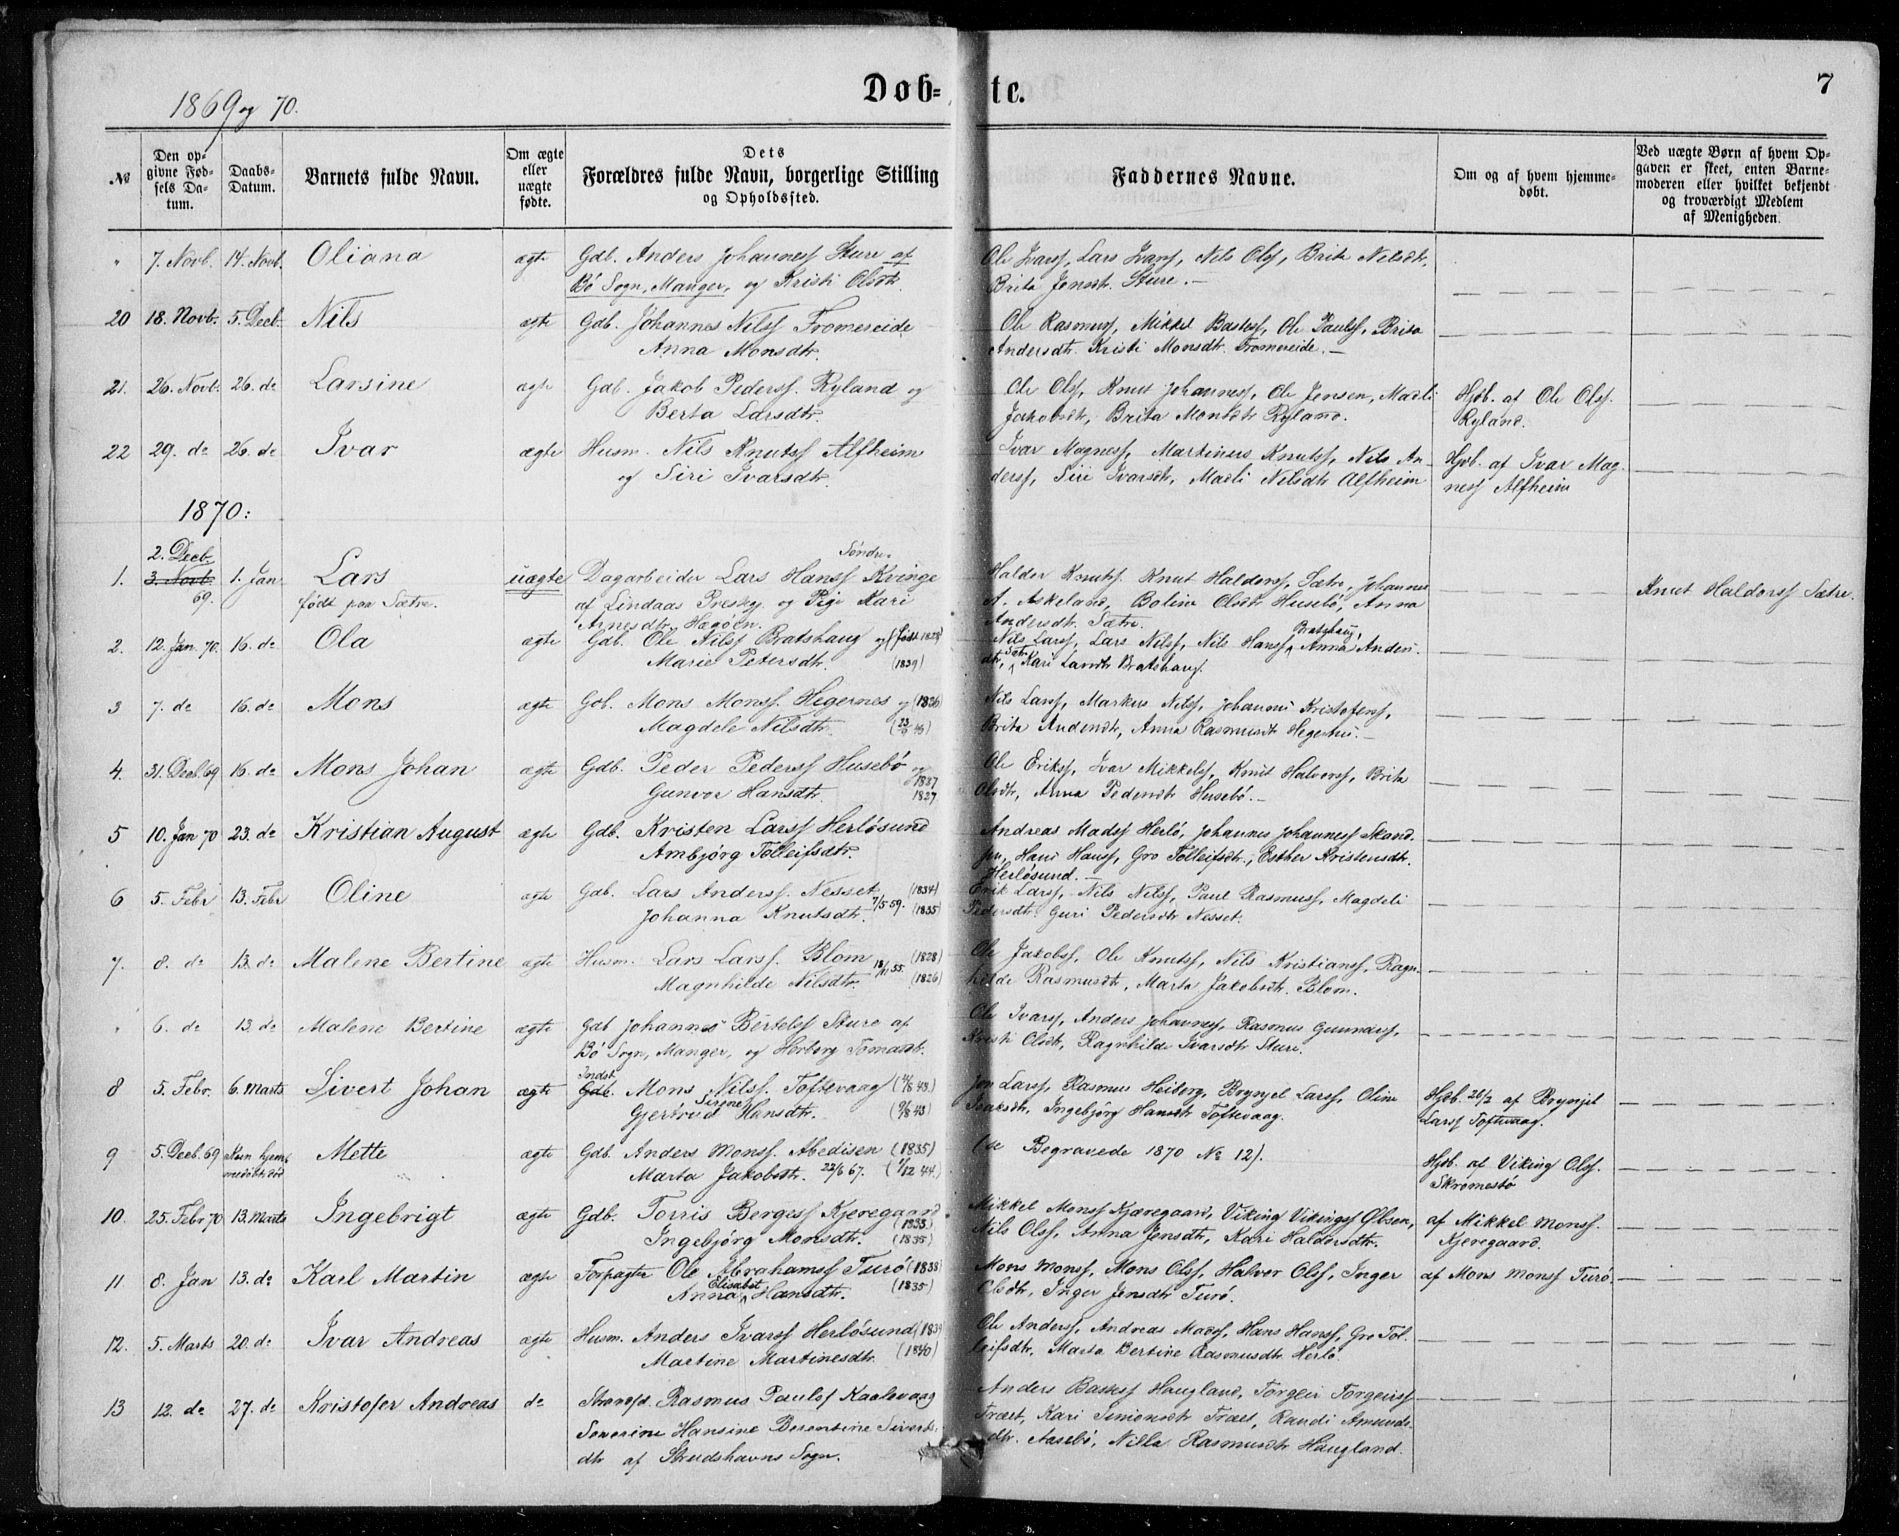 1869 og 70.
Døb-te.
7
№
Den op-
givne Fød-
sels Da-
tum.
Daabs-
Datum.
Barnets fulde Navn.
Om ægte
eller
uægte
fødte.
Dets
Forældres fulde Navn, borgerlige Stilling
og Opholdssted.
Faddernes Navne.
Om og af hvem hjemme-
døbt.
Ved uægte Børn af hvem Op-
gaven er skeet, enten Barne-
moderen eller hvilket bekjendt
og troværdigt Medlem
af Menigheden.
" 7. Novb. 14. Novb. Oliana ægte Gdb. Anders Johanness Sture af
Bø Sogn, Manger, og Kristi Olsdtr.
Ole Ivarss, Lars Ivarss, Nils Olss, Brita Nilsdtr,
Brita Jensdtr. Sture.
20 18. Novb. 5. Decb. Nils ægte Gdb. Johannes Nilss Fromereide
Anna Monsdtr.
Ole Rasmuss, Mikkel Bastess, Ole Paulss, Brita
Andersdtr. Kristi Monsdtr. Fromereide.
21. 26. Novb. 26. do Larsine ægte Gdb. Jakob Pederss. Ryland og
Berta Larsdtr.
Ole Olss, Knut Johanness, Ole Jensen, Madli
Jakobsdtr, Brita Monsdtr Ryland.
Hjdb. af Ole Olss.
Ryland.
22 29. do 26. do Ivar ægte Husm. Nils Knutss Alfheim
og Siri Ivarsdtr.
Ivar Magness, Martinus Knutss, Nils An-
derss, Siri Ivarsdtr, Madli Nilsdtr Alfheim
Hjdb. af Ivar Mag-
ness Alfheim
1870:
2. Decb.
1. 3. Novb. 69. 1. Jan Lars uægte Dagarbeider Lars Hanss Søndre Kvinge
født paa Sætre. af Lindaas Prestg. og Pige Kari
Arnesdtr. Hagøen.
Halder Knutss. Knut Halderss, Sætre, Johannes
A. Askeland, Boline Olsdtr Husebø, Anna
Andersdtr. Sætre.
Knut Haldorss Sætre.
2. 12. Jan 70. 16. do Ola ægte Gdb. Ole Nilss Bratshaug og (født 1828)
Marie Petersdtr. (1839)
Nils Larss, Lars Nilss, Nils Hanss Bratshaug, Anna Anders-
dtr, Kari Larsdtr Bratshaug.
3 7. do 16. do Mons ægte Gdb. Mons Monss. Hegernes og (1826)
Magdele Nilsdtr.
Nils Larss, Markus Nilss, Johannes Kristoferss,
Brita Andersdtr, Anna Rasmusdtr Hegernes.
4. 31. Decb 69 16. do Mons Johan ægte Gdb. Peder Pederss Husebø og 1827
Gunvor Hansdtr. 1827
Ole Erikss, Ivar Mikkelss, Knut Halvorss, Brita
Olsdtr, Anna Pedersdtr Husebø.
5 10. Jan 70 23. do Kristian August ægte Gdb. Kristen Larss Herløsund
Ambjørg Tolleifsdtr.
Andreas Madss Herlø, Johannes Johanness Skand-
, Hans Hanss, Gro Tolleifsdtr, Esther Kristensdtr.
Herløsund.
6 5. Febr 13. Febr Oline ægte Gdb. Lars Anderss. Nesset (1834)
Johanna Knutsdtr. 7/5 59. (1835)
Erik Larss, Nils Nilss, Paul Rasmuss, Magdeli
Pedersdtr. Guri Pedersdtr Nesset.
7. 8. do 13. do Malene Bertine ægte Husm. Lars Larss. Blom (1828)
Magnhilde Nilsdtr. 18/11 55. (1826)
Ole Jakobss, Ole Knutss, Nils Kristianss, Ragn-
hilde Rasmusdtr, Marta Jakobsdtr. Blom.
" 6. do 13. do Malene Bertine ægte Gdb Johannes Bertelss Sture af
Bø Sogn, Manger, og Herborg Tomasdt.
Ole Ivarss, Anders Johanness, Rasmus Gunnarss,
Kristi Olsdtr, Ragnhilde Ivarsdtr Sture.
8 5. Febr. 6. Marts Sivert Johan ægte Indst. Gdb. Mons Nilss. Toftevaag
Gjertrud Sirene Hansdtr.
Jon Larss, Rasmus Heiberg, Brynjel Larss, Oline
Ivarsdtr, Ingebjørg Hansdtr Toftevaag.
Hjdb. 26/2 af Brynjel
Larss Toftevaag.
9 5. Decb. 69 Kun hjem-
medøbt, død Mette ægte Gdb. Anders Monss. Abedisen (1835)
Marta Jakobsdtr. 22/6 67. (1/12 44.)
(se Begravede 1870 № 12).
Hjdb. af Viking Olss.
Skrømestø
10. 25. Febr 70 13. Marts Ingebrigt ægte Gdb. Torris Bergess Kjeregaard (1833)
Ingebjørg Monsdtr. (1835)
Mikkel Monss Kjæregaard, Viking Vikingss Øbsen,
Nils Olss, Anna Jensdtr, Kari Haldorsdtr.
af Mikkel Monss.
Kjeregaard.
11. 8. Jan 13. do Karl Martin ægte Forpagter Ole Abrahamss Turø (1838)
Anna Elisabet Hansdtr. (1835)
Mons Monss, Mons Olss, Halvor Olss, Inger
Olsdtr, Inger Jensdtr Turø.
af Mons Monss Turø.
12. 5. Marts 20. do Ivar Andreas ægte Husm. Anders Ivarss Herløsund (1839
Martine Martinesdtr (1840)
Ole Anderss, Andreas Madss, Hans Hanss, Gro Tol-
leifsdtr, Marta Bertine Rasmusdtr Herlø.
13 12. do 27. do Kristofer Andreas do Strandsd. Rasmus Paulss Kaalevaag
Severine Hansine Berentine Siverts-
dtr af Strudshavns Sogn.
Anders Bastess Haugland, Torgeir Torgeirss
Træet, Kari Simonsdtr Træet, Randi Amunds-
dtr. Aasebø, Nilla Rasmusdtr Haugland.